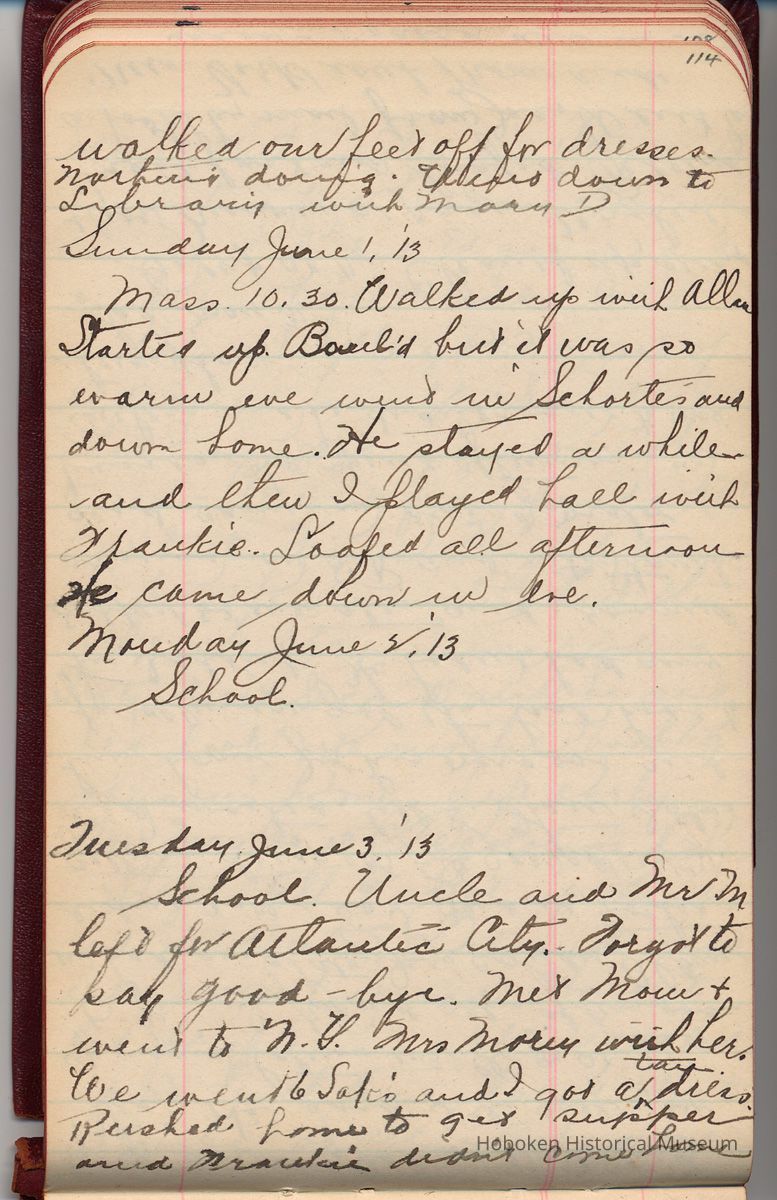 108
114
walked our feet off for dresses.
Nothing doing. Went down to
Library with Mary D
Sunday June 1, '13
Mass 10.30. Walked up with Allan
Started up Boul'd but it was so
warm we went in Schorte's and
down home. He stayed a while
and then I played ball with
Frankie. Loafed all afternoon
He came down in eve.
Monday June 2, '13
School.
Tuesday June 3, '13
School. Uncle and Mr M
left for Atlantic City. Forgot to
say good-bye. Met Mom +
went to N.Y. Mrs Morey with her.
We went to Sak's and I got a tan dress.
Rushed home to get supper
and Frankie didn't come home
Hoboken Historical Museum